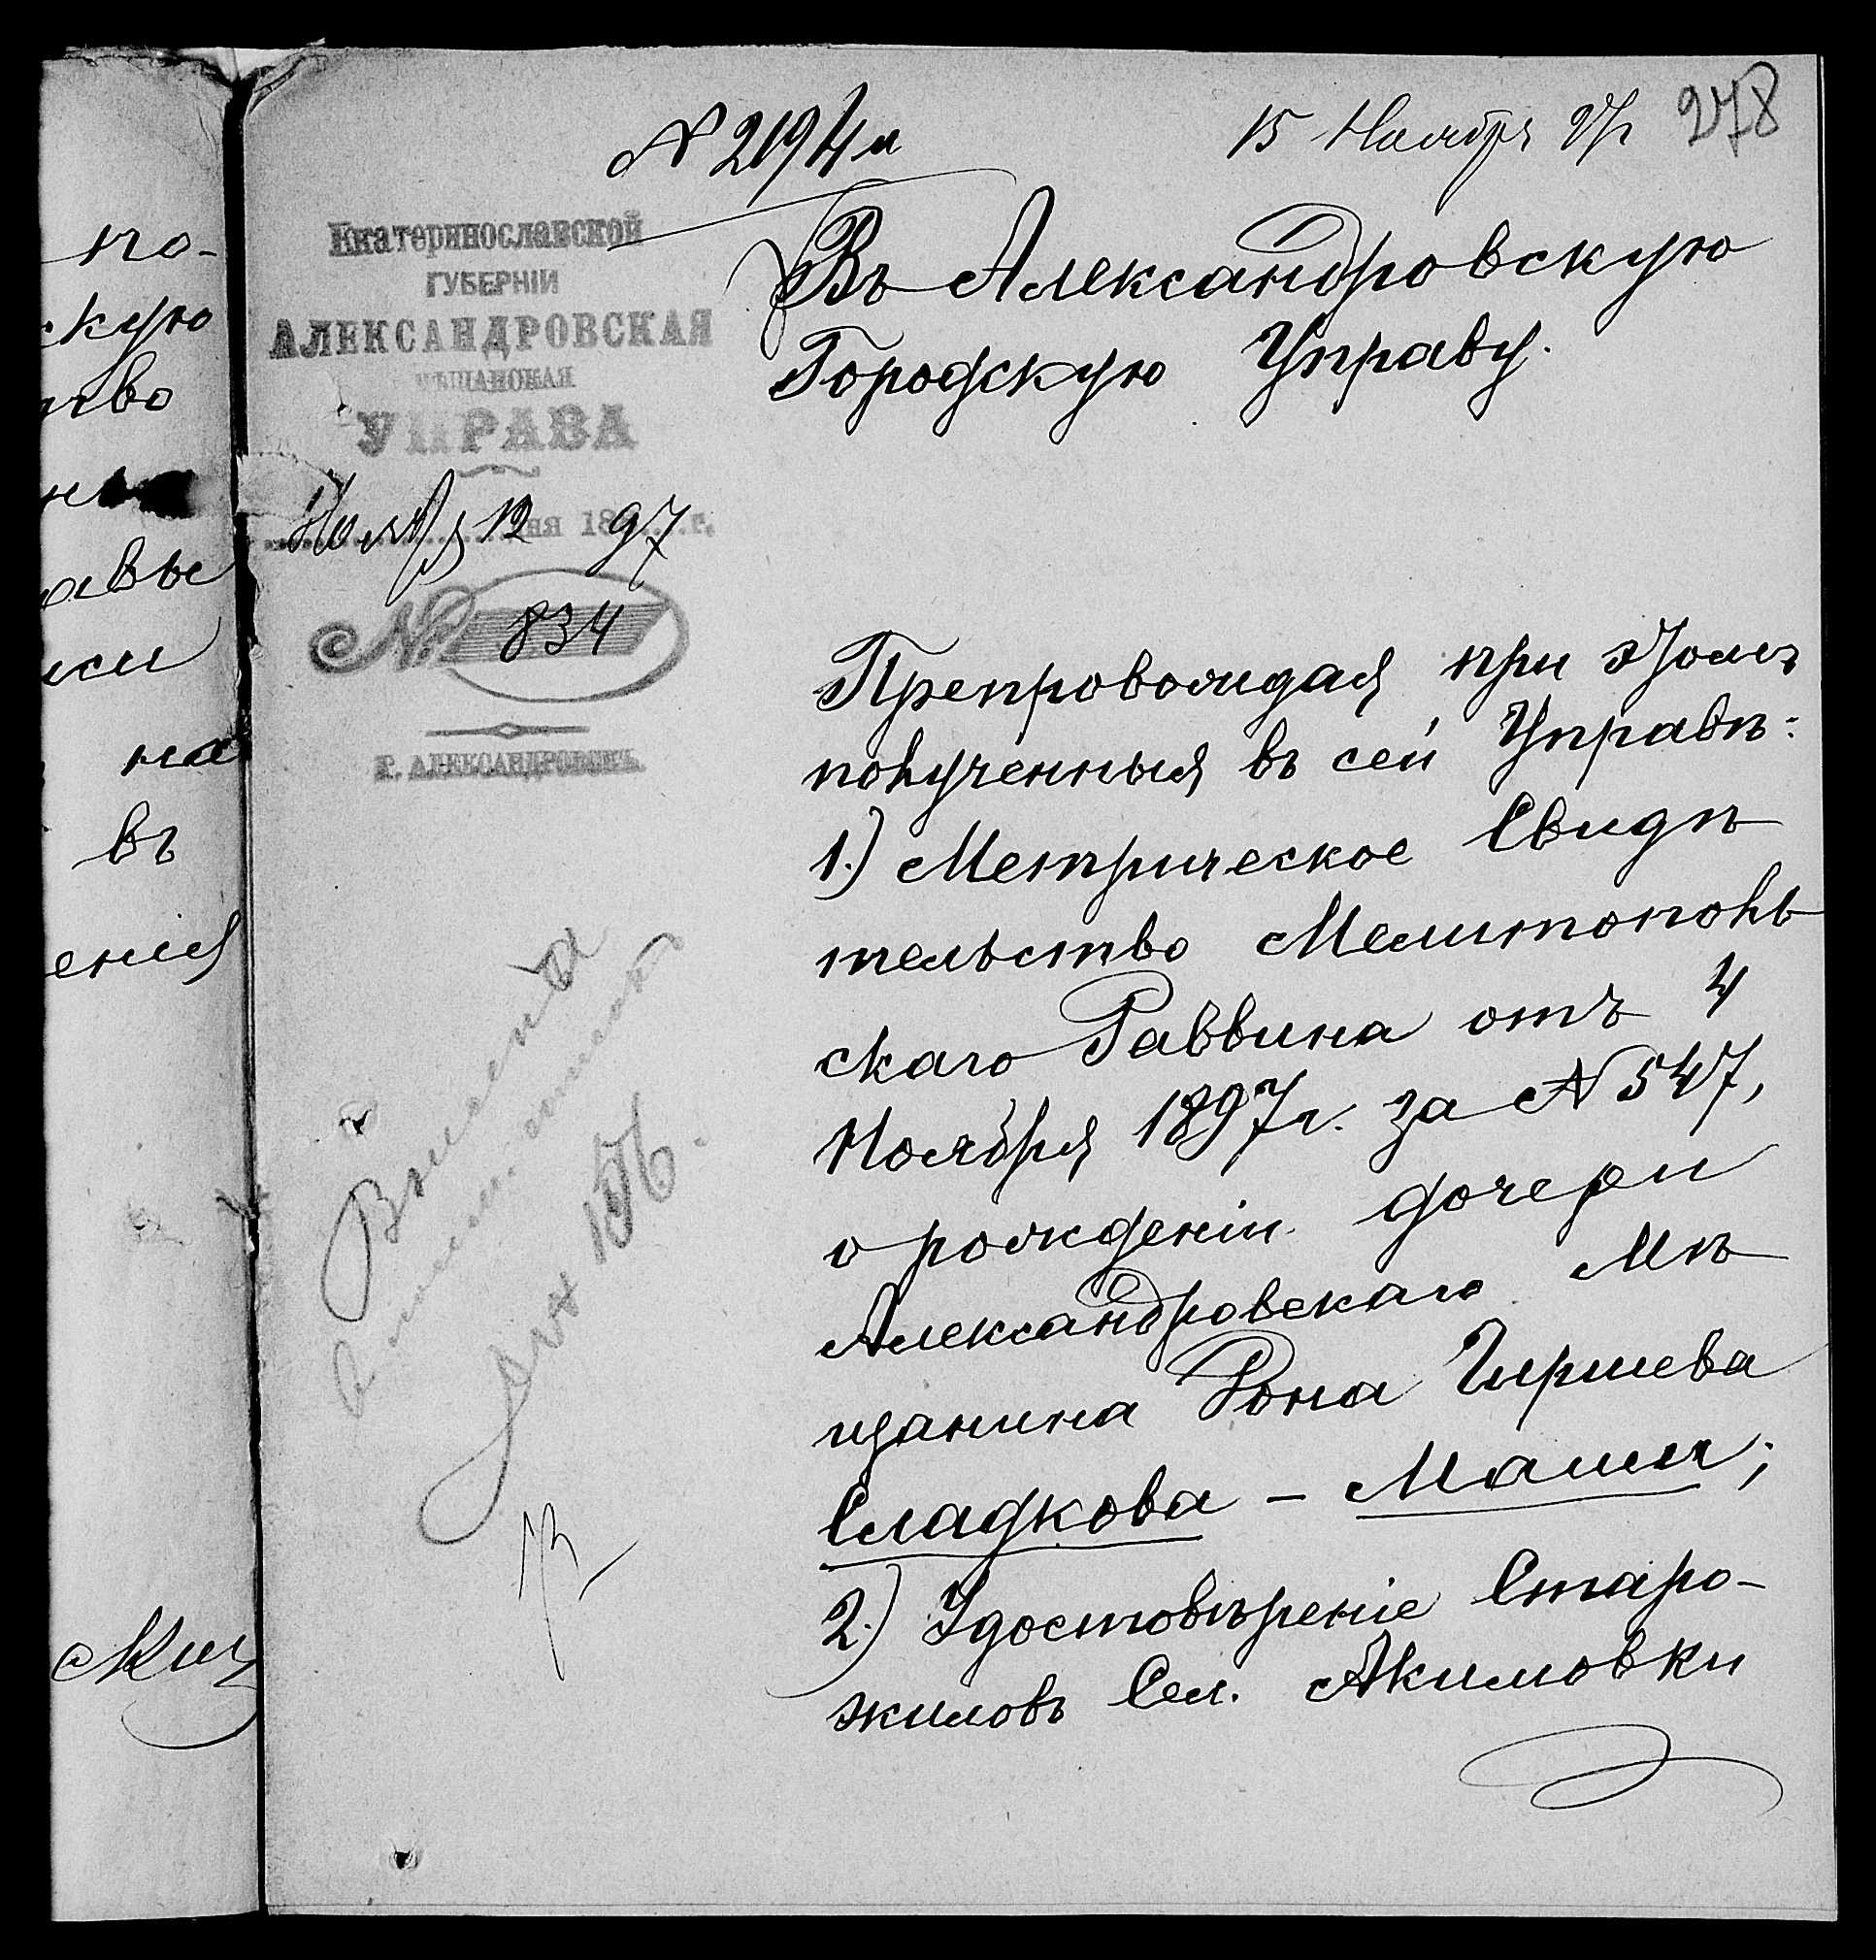 278
№ 2194
15 Ноября 97
Екатеринославской
ГУБЕРНІИ
АЛЕКСАНДРОВСКАЯ
МѢЩАНСКАЯ
УПРАВА
Ноября 12 дня 1897 г.
№ 834
Г. АЛЕКСАНДРОВСКЪ.
Въ Александровскую
Городскую Управу.
Препровождая при этомъ
полученныя въ сей Управѣ:
1.) Метрическое Свидѣ
тельство Мелитополь
скаго Раввина отъ 4
Ноября 1897 г. за № 547,
о рожденіи дочери
Александровскаго Мѣ
щанина Рона Гиршева
Сладкова – Маши;
2.) Удостовѣреніе Старо-
жиловъ Сел. Акимовки
по-
скую
тво
авы
иси
на
въ
енія